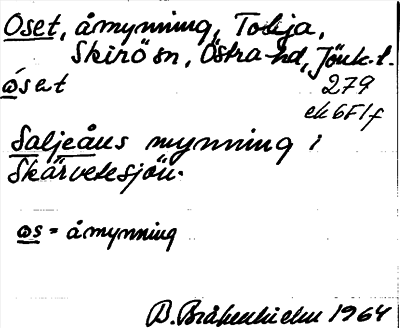 Oset, åmynning, Tobja,
Skirö sn, Östra hd, Jönk. l.
ɷset 279
ek 6F1f
Saljeåns mynning i
Skärvetesjön.
ɷs = åmynning
B. Bråkenhielm 1964